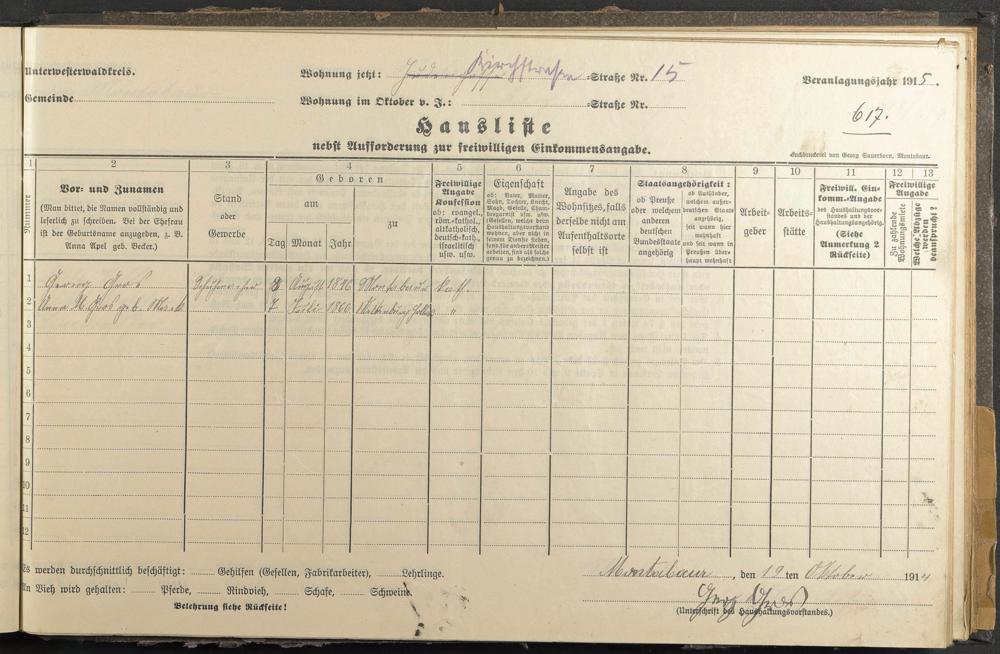 Unterwesterwaldkreis.
Wohnung jetzt: Judengasse Kirchstrasse Straße Nr. 15
Veranlagungsjahr 1915.
Gemeinde
Wohnung im Oktober v. J.: Straße Nr.
617.
Hausliste
nebst Aufforderung zur freiwilligen Einkommensangabe.
Buchdruckerei von Georg Sauerborn, Montabaur.
1 2 3 4 5 6 7 8 9 10 11 12 13
Nummer
Vor- und Zunamen
(Man bittet, die Namen vollständig und
leserlich zu schreiben. Bei der Ehefrau
ist der Geburtsname anzugeben, z. B.
Anna Apel geb. Becker.)
Stand
oder
Gewerbe
Geboren
am
zu
Tag Monat Jahr
Freiwillige
Angabe
Konfession
ob: evangel.,
röm.-kathol.,
altkatholisch,
deutsch-kath.,
israelitisch
usw. usw.
Eigenschaft
ob: Vater, Mutter,
Sohn, Tochter, Knecht,
Magd, Geselle, Cham-
bregarnist usw. usw.
(Gesellen, welche beim
Haushaltungsvorstand
wohnen, aber nicht in
seinem Dienste stehen,
sond. für andere Meister
arbeiten, sind als solche
genau zu bezeichnen.)
Angabe des
Wohnsitzes, falls
derselbe nicht am
Aufenthaltsorte
selbst ist
Staatsangehörigkeit:
ob Preuße
oder welchem
anderen
deutschen
Bundesstaate
angehörig
ob Ausländer,
welchem außer-
deutschen Staate
angehörig,
seit wann hier
wohnhaft
und seit wann in
Preußen über-
haupt wohnhaft
Arbeit-
geber
Arbeits-
stätte
Freiwill. Ein-
komm.-Angabe
des Haushaltungsvor-
standes und der
Haushaltungsangehörig.
(Siehe
Anmerkung 2
Rückseite)
Freiwillige
Angabe
Zu zahlende
Wohnungsmiete
Welche Abzüge
werden
beansprucht?
1 Georg 8 August Montabaur Kath.
2 Anna M. geb. 7 Juli 1860 "
3
4
5
6
7
8
9
10
11
12
Es werden durchschnittlich beschäftigt: Gehilfen (Gesellen, Fabrikarbeiter), Lehrlinge.
An Vieh wird gehalten: Pferde, Rindvieh, Schafe, Schweine.
Belehrung siehe Rückseite!
Montabaur, den 19 ten Oktober 1914
Georg
(Unterschrift des Haushaltungsvorstandes.)